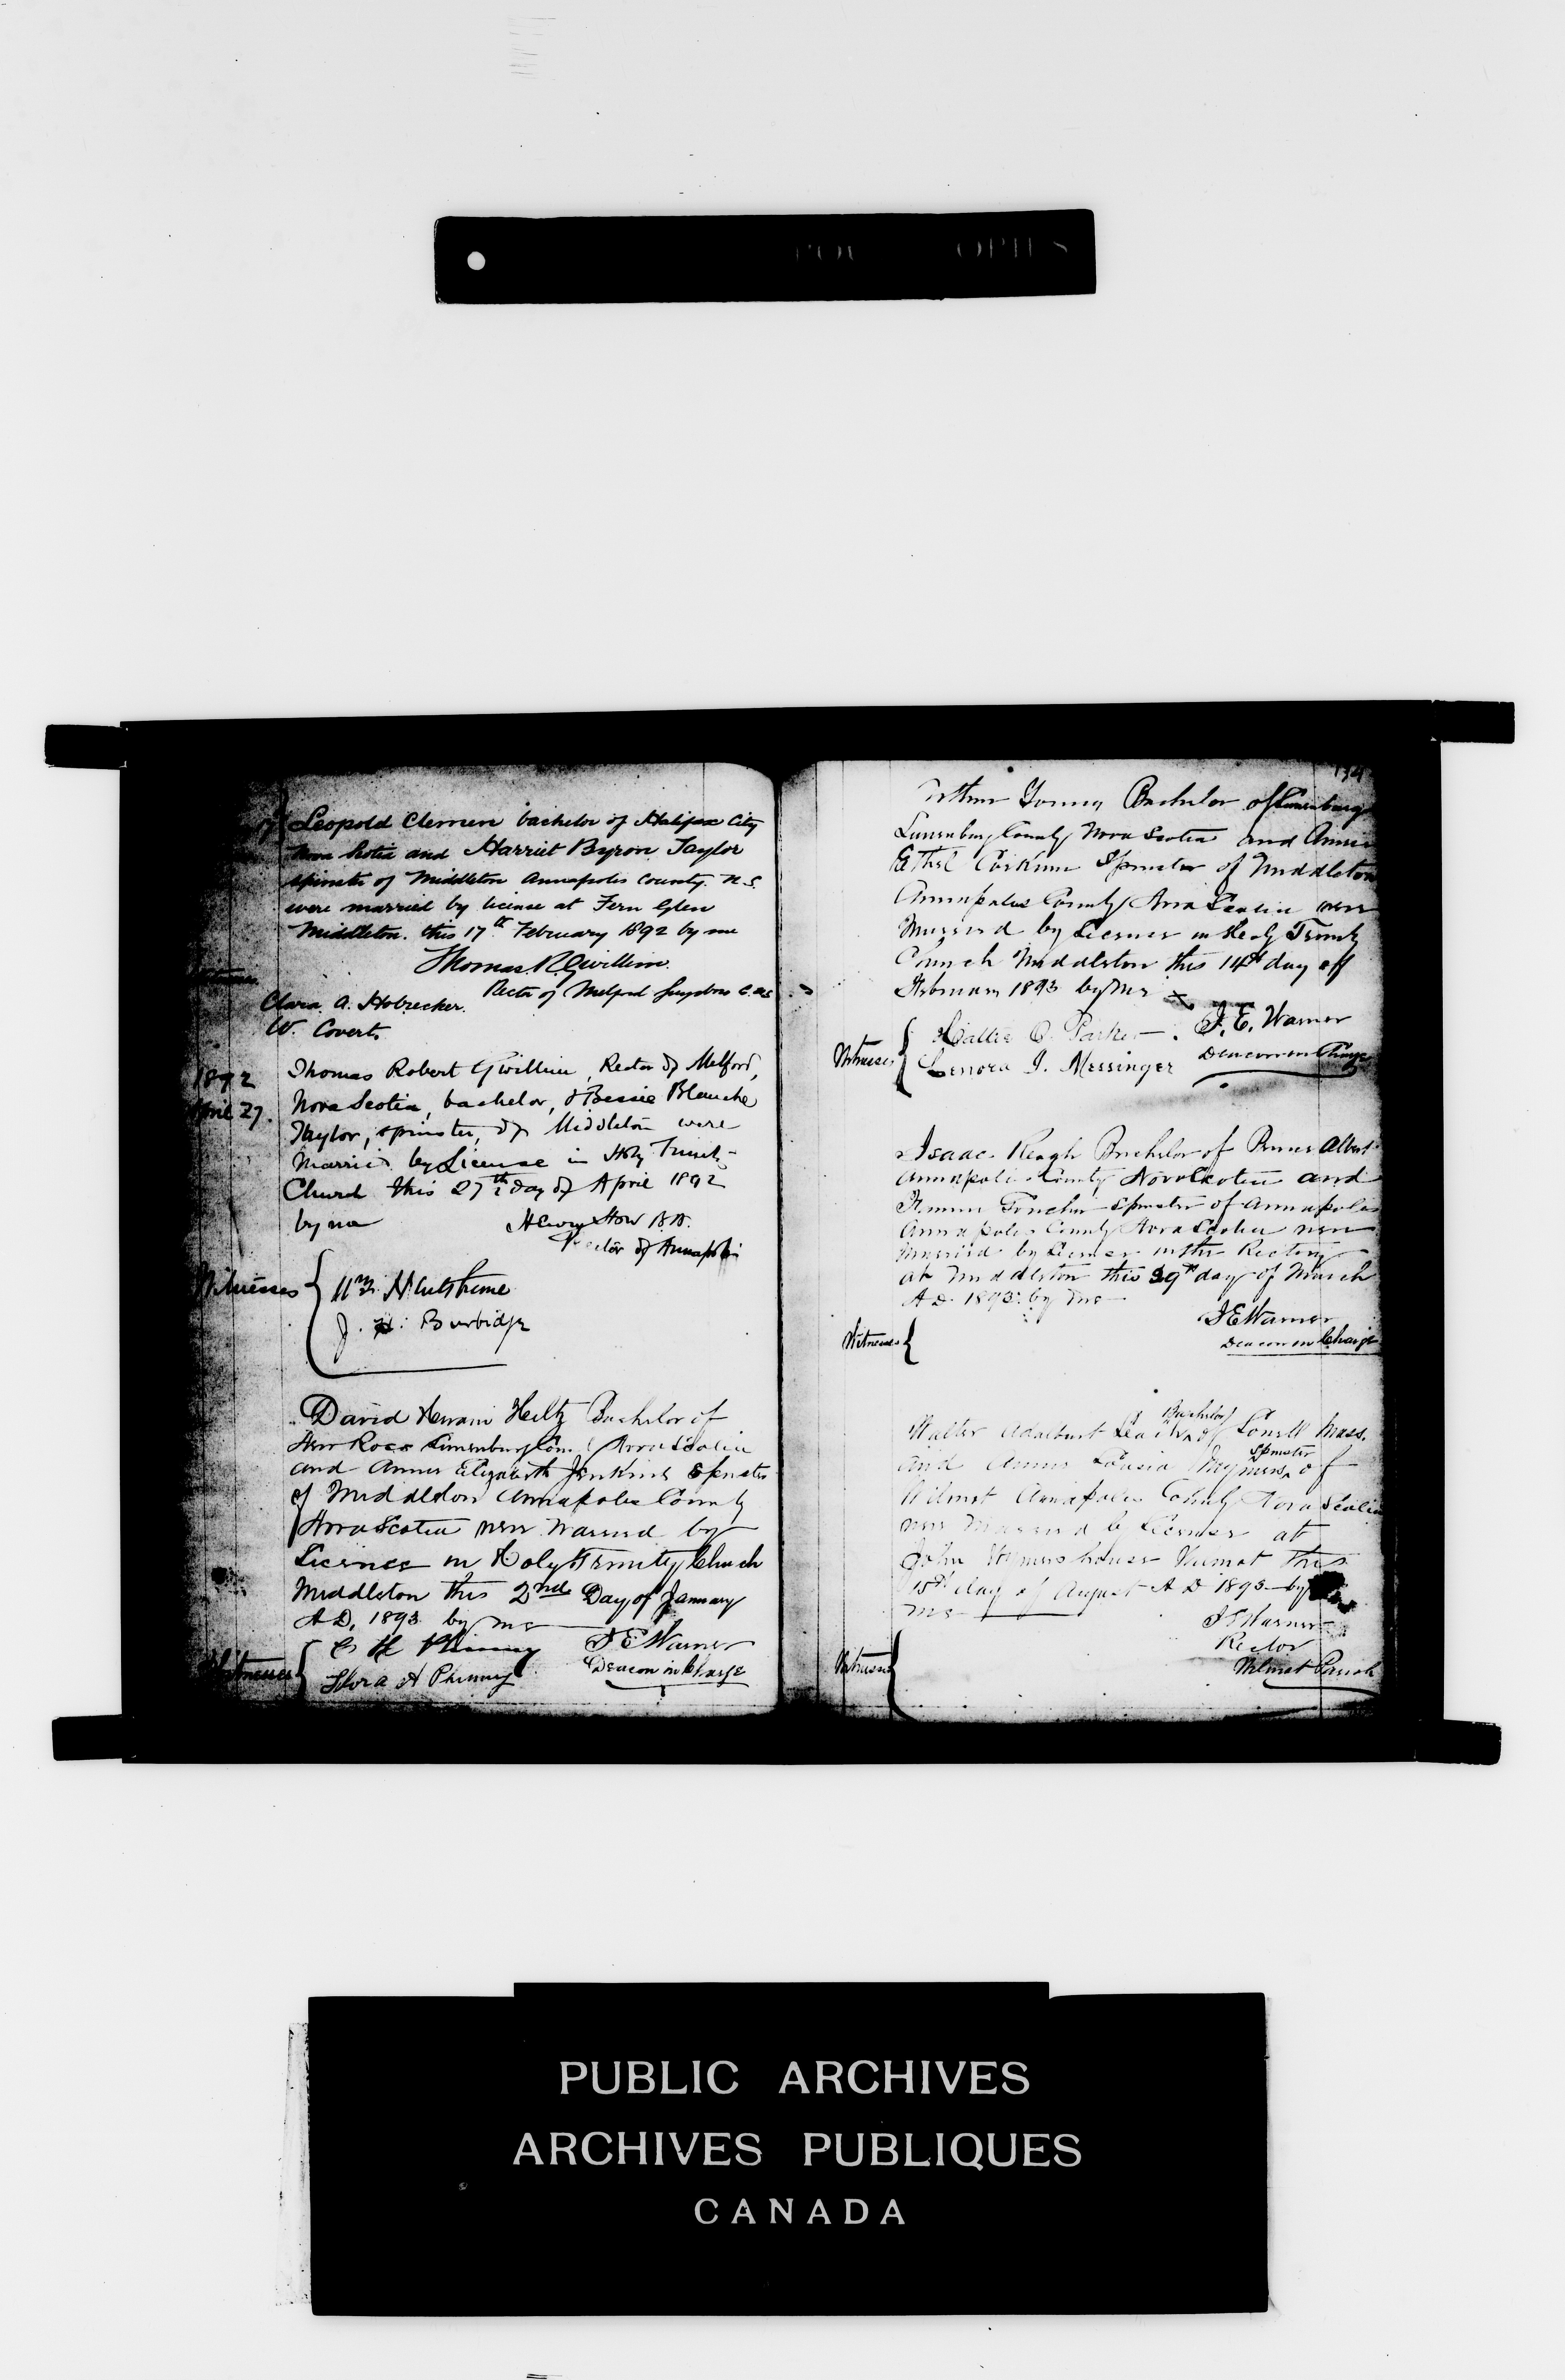 Leopold Clemen bachelor of Halifax City
Nova Scotia and Harriet Byron Taylor
spinster of Middleton Annapolis County. N.S.
were married by license at Fern Glen
Middleton. this 17th February 1892 by me
Thomas R Gwillim.
Rector of Melford
Clara A. Hobrecker.
W. Covert.
1892
April 27.
Thomas Robert Gwillim, Rector of Melford,
Nova Scotia, bachelor, & Bessie Blanche
Taylor, spinster, of Middleton were
Married by License in Holy Trinity
Church this 27th day of April 1892
by me
Henry How B.A.
Rector of Annapolis
Witnesses
Wm
J. H. Burbidge
David Hiltz Bachelor of
New Ross Lunenburg Nova Scotia
and Annie Elizabeth Jenkins Spinster
of Middleton Annapolis County
Nova Scotia were Married by
Licence in Holy Trinity Church
Middleton this 2nd Day of January
A.D. 1893 by me
Phinney
J E Warner
Deacon in Charge
Witnesses
Flora A Phinney
134
Arthur Young Bachelor of Lunenburg
Lunenburg County Nova Scotia and Annie
Ethel Corkum Spinster of Middleton
Annapolis County Nova Scotia were
Married by License in Holy Trinity
Church Middleton this 14th day of
February 1893 by me x
J. E. Warner
Deacon in Charge
Witnesses
Hallie C. Parker
Lenora I. Messinger
Isaac Keogh Bachelor of Prince Albert
Annapolis County Nova Scotia and
Spinster of Annapolis
Annapolis County Nova Scotia were
married by License in the Rectory
at Middleton this 29th day of March
A.D. 1893. by me
J E Warner
Deacon in Charge
Witnesses
Bachelor
Walter Adalbert of Lowell Mass.
Spinster
and Annie Louisa of
Wilmot Annapolis County Nova Scotia
were Married by License at
John house Wilmot this
15th day of August A D 1893 by
me
J E Warner
Rector
Wilmot Parish
Witnesses
PUBLIC ARCHIVES
ARCHIVES PUBLIQUES
CANADA